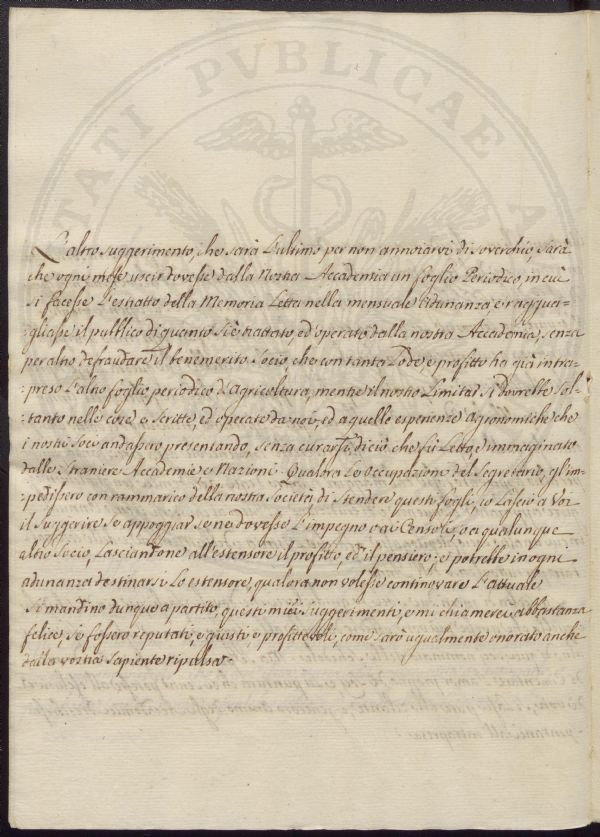 TATI PVBLICAE
L'altro suggerimento, che sarà l'ultimo per non annoiarvi di soverchio, sarà
che ogni mese uscir dovesse dalla Nostra Accademia un foglio Periodico, in cui
si facesse l'estratto della Memoria Letta nella mensuale Adunanza, e raggua-
:gliasse il pubblico di quanto si è trattato, ed operato dalla nostra Accademia, senza
per altro defraudare il benemerito Socio, che con tanta Lode, e profitto ha già intra-
:preso l'altro foglio periodico d'Agricoltura, mentre il nostro Limitar si dovrebbe sol-
:tanto nelle cose, e Scritte, ed operate da noi, ed a quelle esperienze Agronomiche che
i nostri Soci andassero presentando, senza curarsi di ciò che fù Letto, e immaginato
dalle Straniere Accademie, e Nazioni. Qualora le occupazioni del Segretario, gl'im-
:pedissero con rammarico della nostra Società di Stendere questi fogli, io Lascio a Voi
il Suggerire se appoggiar se ne dovesse l'impegno, o ai Censori, o a qualunque
altro Socio, Lasciandone all'estensore il profitto, ed il pensiero; e potrebbe in ogni
adunanza destinarsi Lo estensore, qualora non volesse continovare L'attuale
Si mandino dunque a partito, questi miei Suggerimenti, e mi chiamerei abbastanza
felice, se fossero reputati, e giusti, e profittevoli, come sarò ugualmente onorato anche
dalla vostra Sapiente ripulsa.